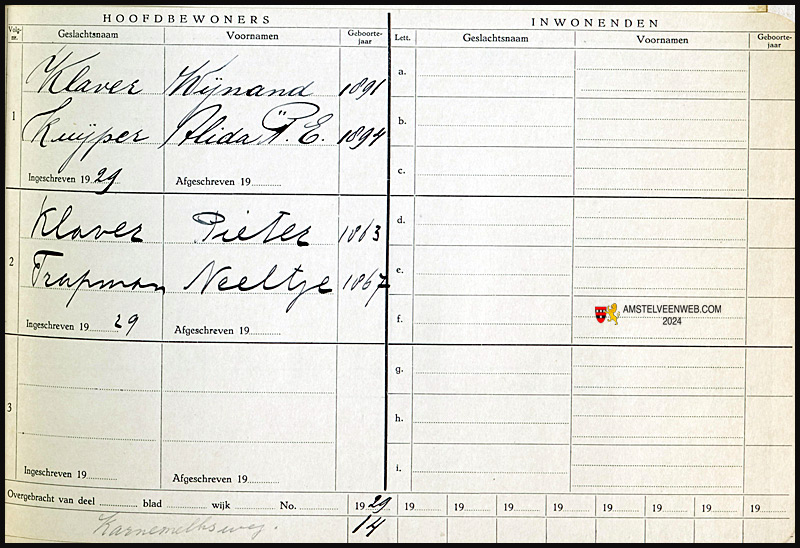 HOOFDBEWONERS INWONENDEN
Volg-nr. Geslachtsnaam Voornamen Geboorte-jaar Lett. Geslachtsnaam Voornamen Geboorte-jaar
Klaver Wijnand 1891 a.
1 Kuijper Alida E. 1894 b.
c.
Ingeschreven 1929 Afgeschreven 19
Klaver Pieter 1863 d.
2 Trapman Neeltje 1867 e.
Ingeschreven 19 29 Afgeschreven 19 f.
AMSTELVEENWEB.COM
2024
g.
3 h.
Ingeschreven 19 Afgeschreven 19 i.
Overgebracht van deel blad wijk No. 1929 19 19 19 19 19 19 19 19
Karnemelksweg. 14